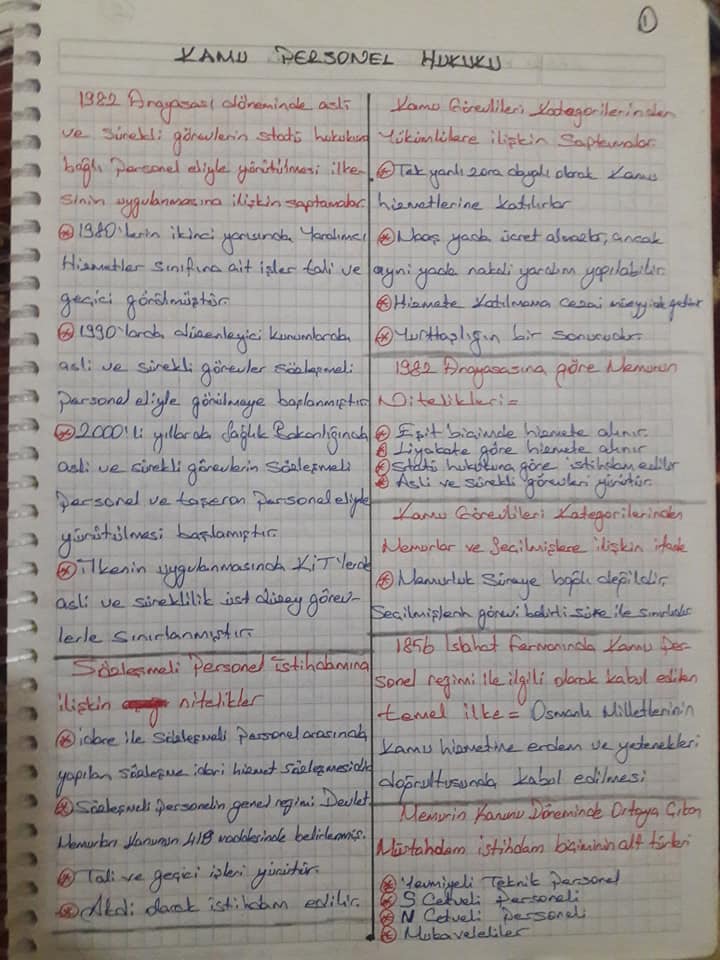 1
KAMU PERSONEL HUKUKU
1982 Anayasası döneminde asli
ve sürekli görevlerin statü hukukuna
bağlı personel eliyle yürütülmesi ilke-
sinin uygulanmasına ilişkin saptamalar
* 1980'lerin ikinci yarısında Yardımcı
Hizmetler sınıfına ait işler tali ve
geçici görülmüştür.
* 1990'larda düzenleyici kurumlarda
asli ve sürekli görevler sözleşmeli
personel eliyle görülmeye başlanmıştır
* 2000'li yıllarda Sağlık Bakanlığında
asli ve sürekli görevlerin sözleşmeli
personel ve taşeron personel eliyle
yürütülmesi başlamıştır.
* ilkenin uygulanmasında KİT'lerde
asli ve süreklilik üst düzey görev-
lerle sınırlanmıştır.
Sözleşmeli Personel istihdamına
ilişkin nitelikler
* idare ile sözleşmeli personel arasında
yapılan sözleşme idari hizmet sözleşmesidir
* Sözleşmeli personelin genel rejimi Devlet
Memurları Kanunun 4/B maddesinde belirlenmiş.
* Tali ve geçici işleri yürütür.
* Akdi olarak istihdam edilir.
Kamu Görevlileri Kategorilerinden
Yükümlülere ilişkin Saptamalar
* Tek yanlı zora dayalı olarak Kamu
hizmetlerine katılırlar
* Maaş yada ücret almazlar, ancak
ayni yada nakdi yardım yapılabilir.
* Hizmete katılmama cezai müeyyide getirir
* Yurttaşlığın bir sonucudur.
1982 Anayasasına göre Memurun
Nitelikleri =
* Eşit biçimde hizmete alınır.
* Liyakate göre hizmete alınır
* Statü hukukuna göre istihdam edilir
* Asli ve sürekli görevleri yürütür.
Kamu Görevlileri Kategorilerinden
Memurlar ve Seçilmişlere ilişkin ifade
* Memurluk Süreye bağlı değildir,
Seçilmişlerin görevi belirli süre ile sınırlıdır
1856 Islahat Fermanında Kamu Per-
sonel rejimi ile ilgili olarak kabul edilen
temel ilke = Osmanlı Milletlerinin
Kamu hizmetine erdem ve yetenekleri
doğrultusunda kabul edilmesi
Memurin Kanunu Döneminde Ortaya Çıkan
Müstahdem istihdam biçiminin alt türleri
* Yevmiyeli Teknik Personel
* S Cetveli Personeli
* N Cetveli Personeli
* Mukaveleliler